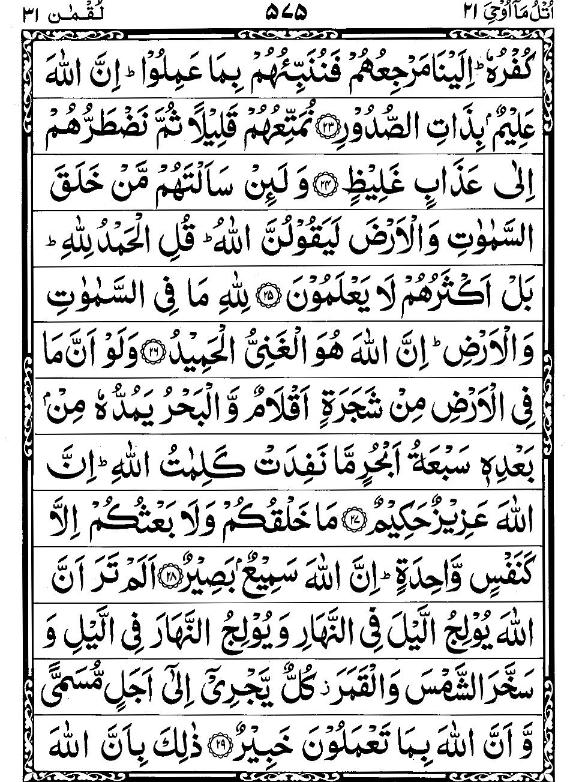 اُتْلُ مَآ اُوْحِیَ ٢١ ۵۷۵ لُقْمٰن ٣١
كُفْرُهٗ ؕ اِلَیْنَا مَرْجِعُهُمْ فَنُنَبِّئُهُمْ بِمَا عَمِلُوْا ؕ اِنَّ اللّٰهَ
عَلِیْمٌۢ بِذَاتِ الصُّدُوْرِ ﴿۲۳﴾ نُمَتِّعُهُمْ قَلِیْلًا ثُمَّ نَضْطَرُّهُمْ
اِلٰی عَذَابٍ غَلِیْظٍ ﴿۲۴﴾ وَ لَىِٕنْ سَاَلْتَهُمْ مَّنْ خَلَقَ
السَّمٰوٰتِ وَ الْاَرْضَ لَیَقُوْلُنَّ اللّٰهُ ؕ قُلِ الْحَمْدُ لِلّٰهِ ؕ
بَلْ اَكْثَرُهُمْ لَا یَعْلَمُوْنَ ﴿۲۵﴾ لِلّٰهِ مَا فِی السَّمٰوٰتِ
وَ الْاَرْضِ ؕ اِنَّ اللّٰهَ هُوَ الْغَنِیُّ الْحَمِیْدُ ﴿۲۶﴾ وَلَوْ اَنَّ مَا
فِی الْاَرْضِ مِنْ شَجَرَةٍ اَقْلَامٌ وَّ الْبَحْرُ یَمُدُّهٗ مِنْۢ
بَعْدِهٖ سَبْعَةُ اَبْحُرٍ مَّا نَفِدَتْ كَلِمٰتُ اللّٰهِ ؕ اِنَّ
اللّٰهَ عَزِیْزٌ حَكِیْمٌ ﴿۲۷﴾ مَا خَلْقُكُمْ وَلَا بَعْثُكُمْ اِلَّا
كَنَفْسٍ وَّاحِدَةٍ ؕ اِنَّ اللّٰهَ سَمِیْعٌۢ بَصِیْرٌ ﴿۲۸﴾ اَلَمْ تَرَ اَنَّ
اللّٰهَ یُوْلِجُ الَّیْلَ فِی النَّهَارِ وَ یُوْلِجُ النَّهَارَ فِی الَّیْلِ وَ
سَخَّرَ الشَّمْسَ وَ الْقَمَرَ ز كُلٌّ یَّجْرِیْۤ اِلٰۤی اَجَلٍ مُّسَمًّی
وَّ اَنَّ اللّٰهَ بِمَا تَعْمَلُوْنَ خَبِیْرٌ ﴿۲۹﴾ ذٰلِكَ بِاَنَّ اللّٰهَ